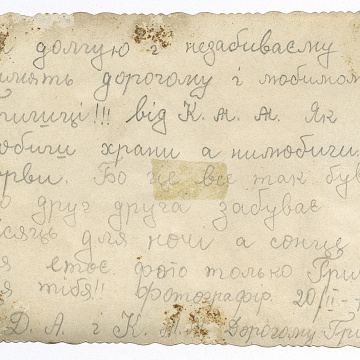 долгую і незабиваєму
дорогому і любимом
!!! від К. М. М. Як
храни а нилюбиш
рви. Бо це все так був
друг друга забуває
для ночі а сонце
фото только Гри
тібя!! Фотографір. 20/II
Д. А. г К. М. Дорогому Гри